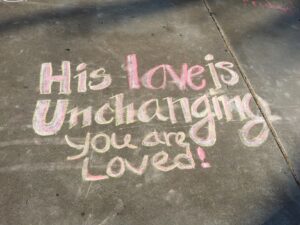 His love is
Unchanging
you are
Loved!